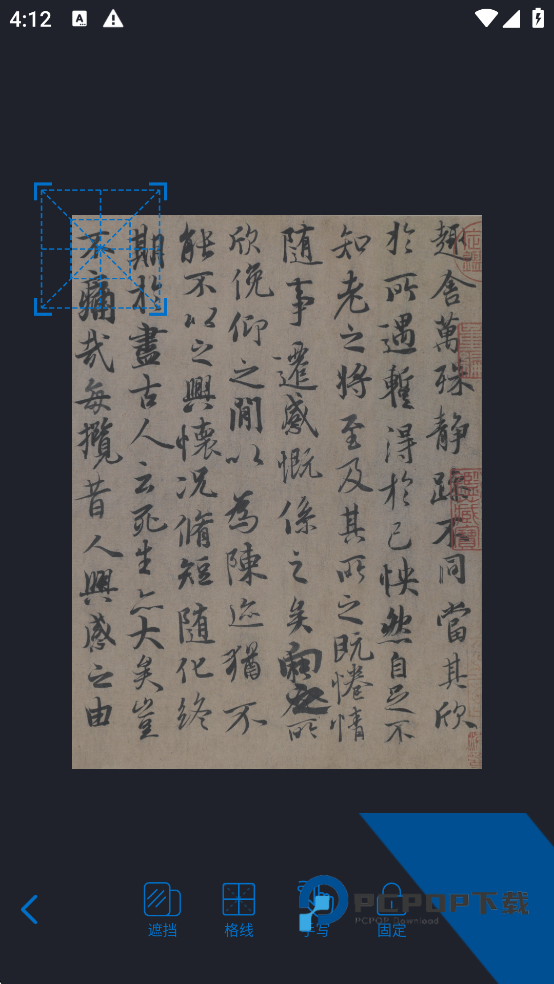 4:12
趣舍萬殊静躁不同當其欣
於所遇暫得於己怏然自足不
知老之將至及其所之既惓情
隨事遷感慨係之矣向之所
欣俛仰之閒以為陳迹猶不
能不以之興懷况脩短隨化終
期於盡古人云死生亦大矣豈
不痛哉每攬昔人興感之由
遮挡 格线 手写 固定
PCPOP下载
PCPOP Download